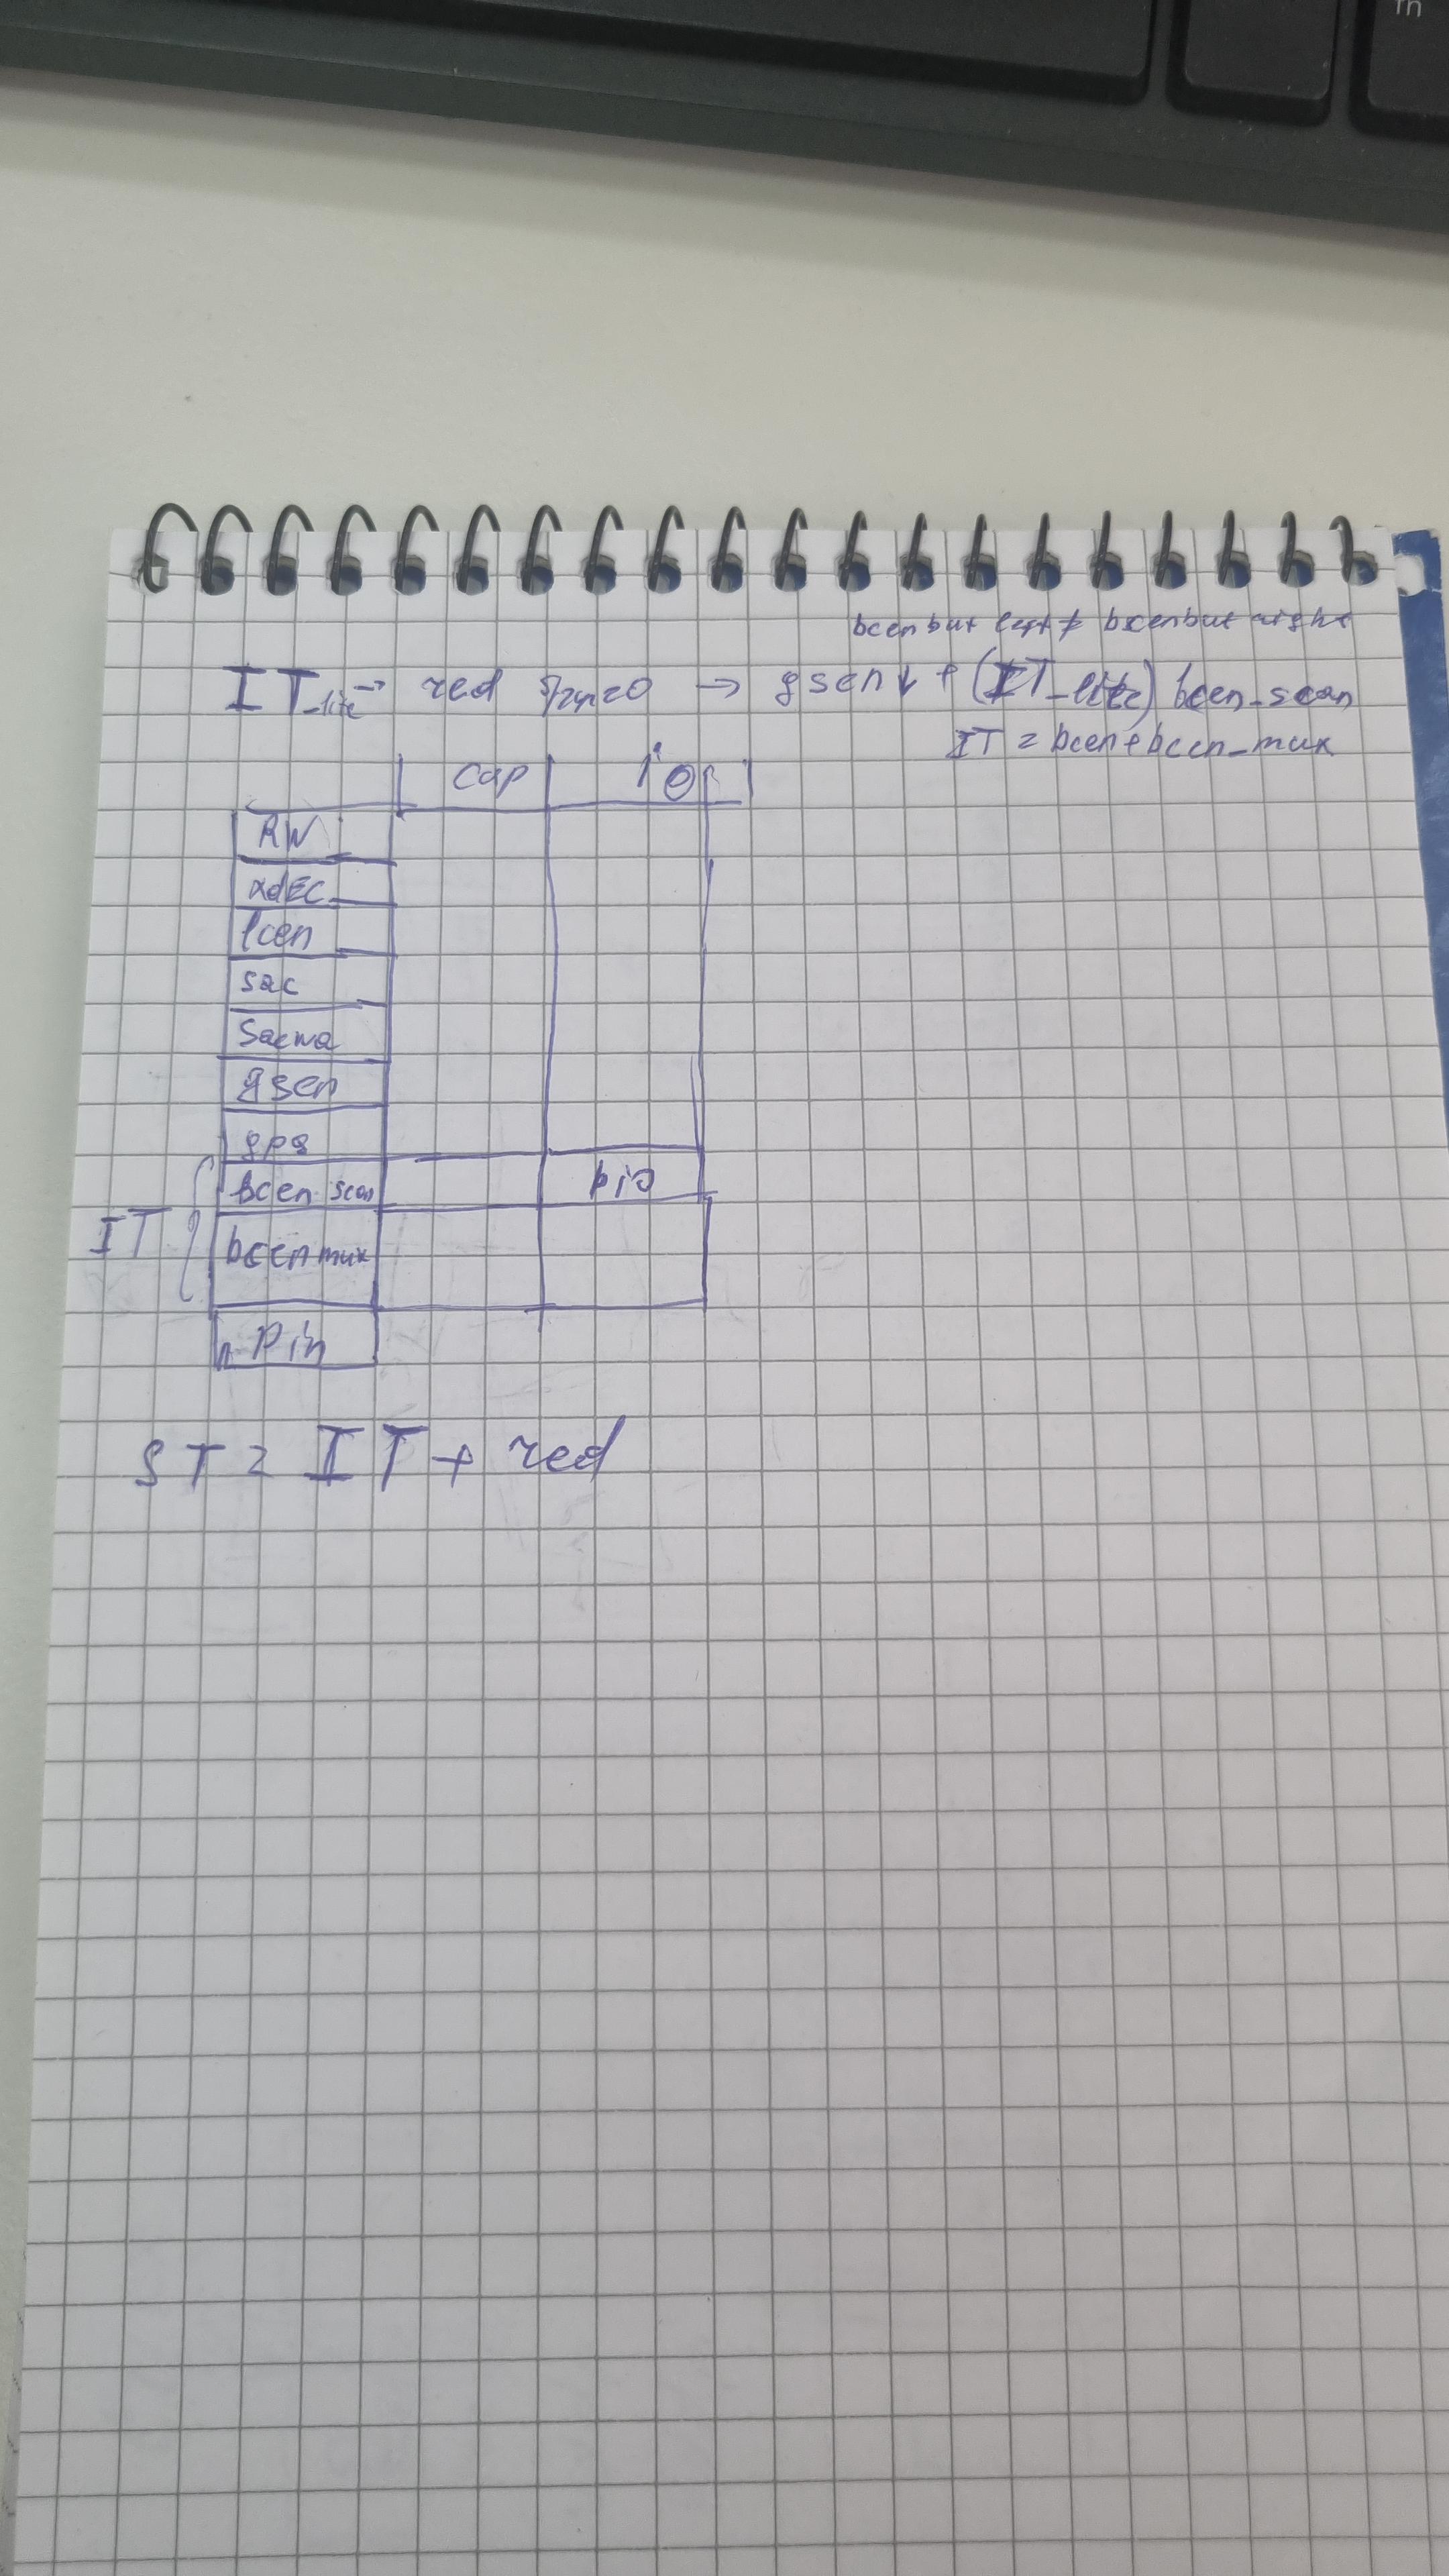 bcenbut left ≠ bcenbut right
IT_lite → red → gsen ↓ + (IT_lite) bcen_scan
IT = bcen + bcen_mux
cap io
RW
xdEC
lcen
sac
gsen
bcen scan bio
IT bcen mux
Pin
ST = IT + red